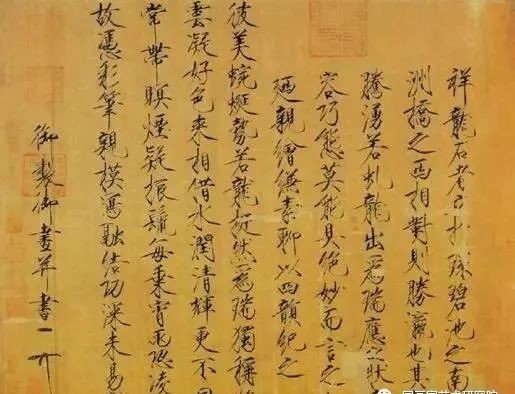 祥龍石者立於環碧池之南
洲橋之西相對則勝瀛也其
騰湧若虬龍出為瑞應之狀
容巧態莫能具絕妙而言之
廼親繪縑素聊以四韻紀之
彼美蜿蜒勢若龍挺然為瑞獨稱
雲凝好色來相借水潤清輝更不同
常帶暝煙疑振鬣每乘宵雨恐凌
故憑彩筆親模寫融結功深未易
御製御畫并書